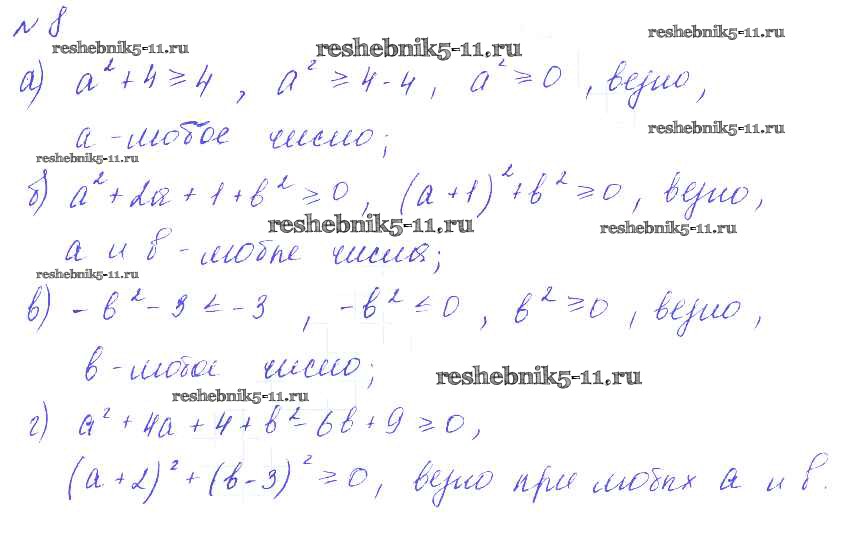 № 8
reshebnik5-11.ru reshebnik5-11.ru reshebnik5-11.ru
а) a² + 4 ≥ 4 , a² ≥ 4 - 4 , a² ≥ 0 , верно,
а - любое число;
reshebnik5-11.ru reshebnik5-11.ru
б) a² + 2a + 1 + b² ≥ 0 , (a + 1)² + b² ≥ 0 , верно,
reshebnik5-11.ru reshebnik5-11.ru
а и b - любые числа;
reshebnik5-11.ru
в) - b² - 3 ≤ -3 , - b² ≤ 0 , b² ≥ 0 , верно,
b - любое число;
reshebnik5-11.ru reshebnik5-11.ru
г) a² + 4a + 4 + b² - 6b + 9 ≥ 0 ,
(a + 2)² + (b - 3)² ≥ 0 , верно при любых a и b.